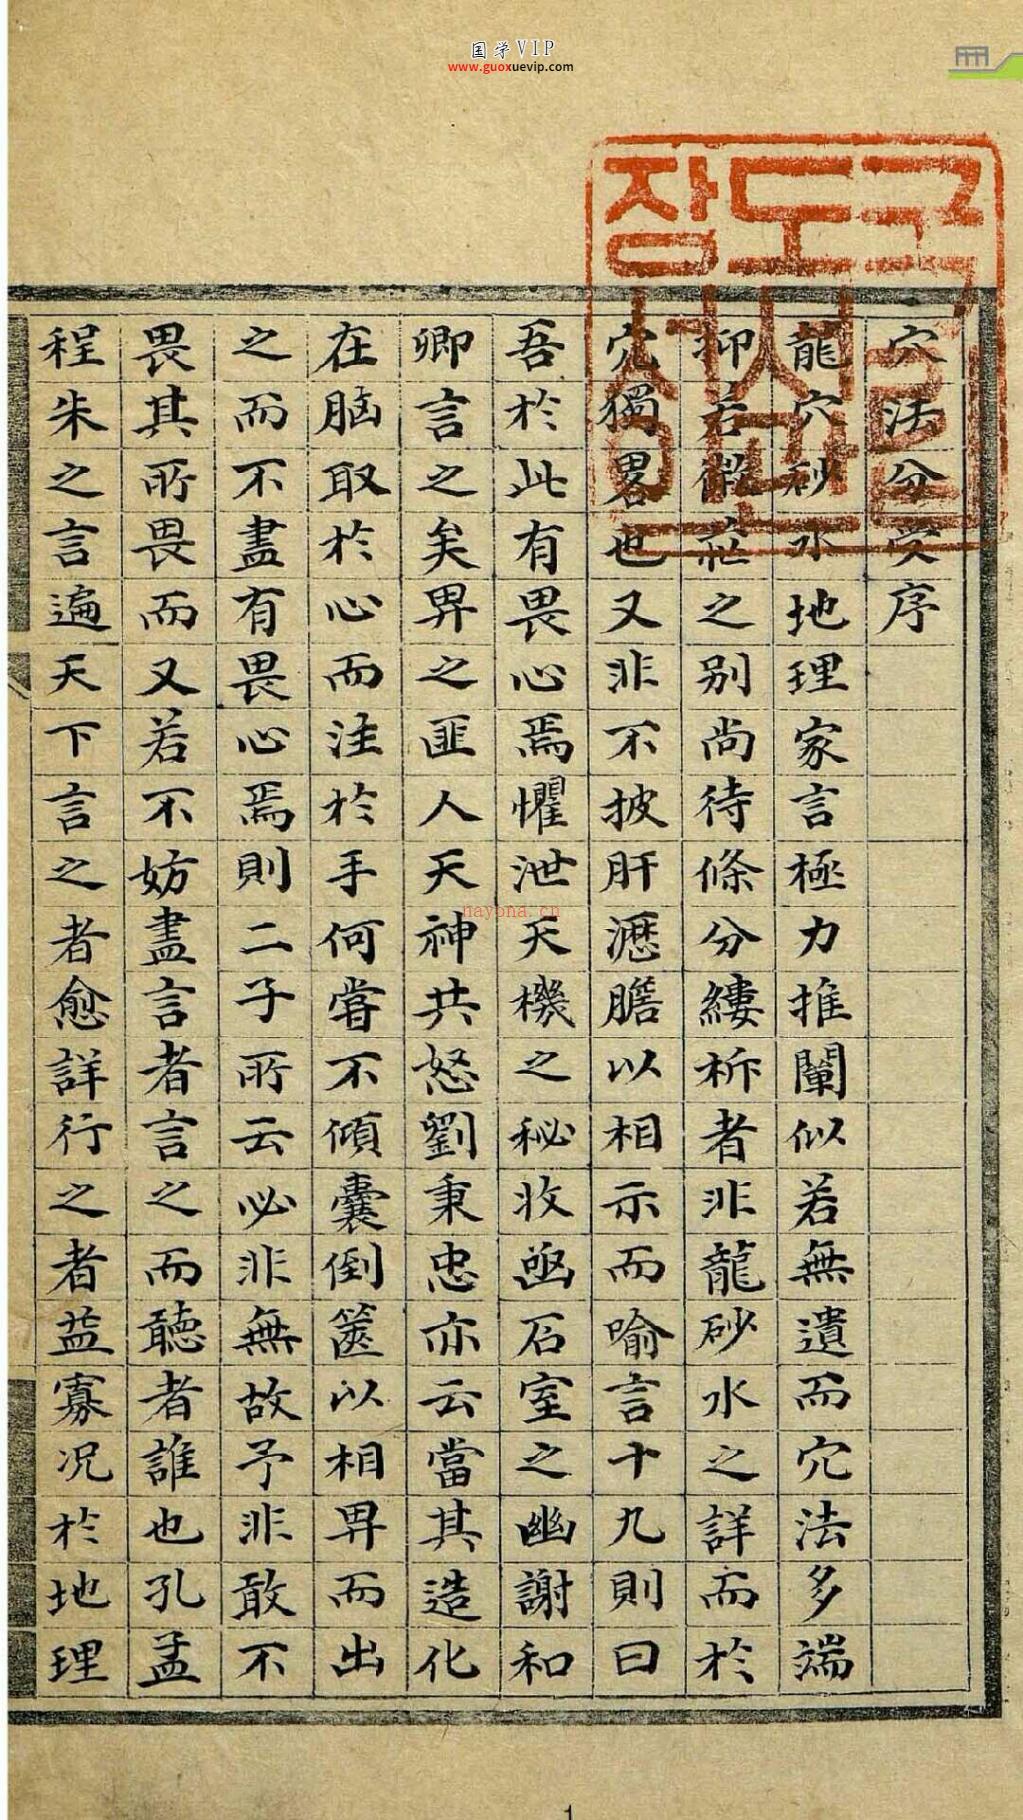 国学VIP
www.guoxuevip.com
국립
도서관
장서인
穴法分受序
龍穴砂水地理家言極力推闡似若無遺而穴法多端
抑若微茫之别尚待條分縷柝者非龍砂水之詳而於
穴獨畧也又非不披肝瀝膽以相示而喻言十九則曰
吾於此有畏心焉懼泄天機之秘收凾石室之幽謝和
卿言之矣畀之匪人天神共怒劉秉忠亦云當其造化
在脑取於心而注於手何嘗不傾囊倒篋以相畀而出
之而不盡有畏心焉則二子所云必非無故予非敢不
畏其所畏而又若不妨盡言者言之而聽者誰也孔孟
程朱之言遍天下言之者愈詳行之者益寡况於地理
nayona.cn
1